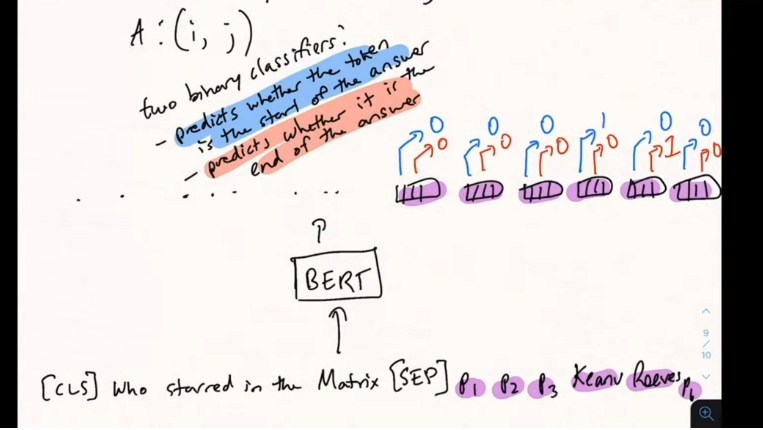 A : (i, j)
two binary classifiers:
- predicts whether the token
is the start of the answer
- predicts whether it is the
end of the answer
0 0 0 1 0 0
0 0 0 0 1 0
BERT
[CLS] who starred in the Matrix [SEP] P1 P2 P3 Keanu Reeves P6
9
/
10